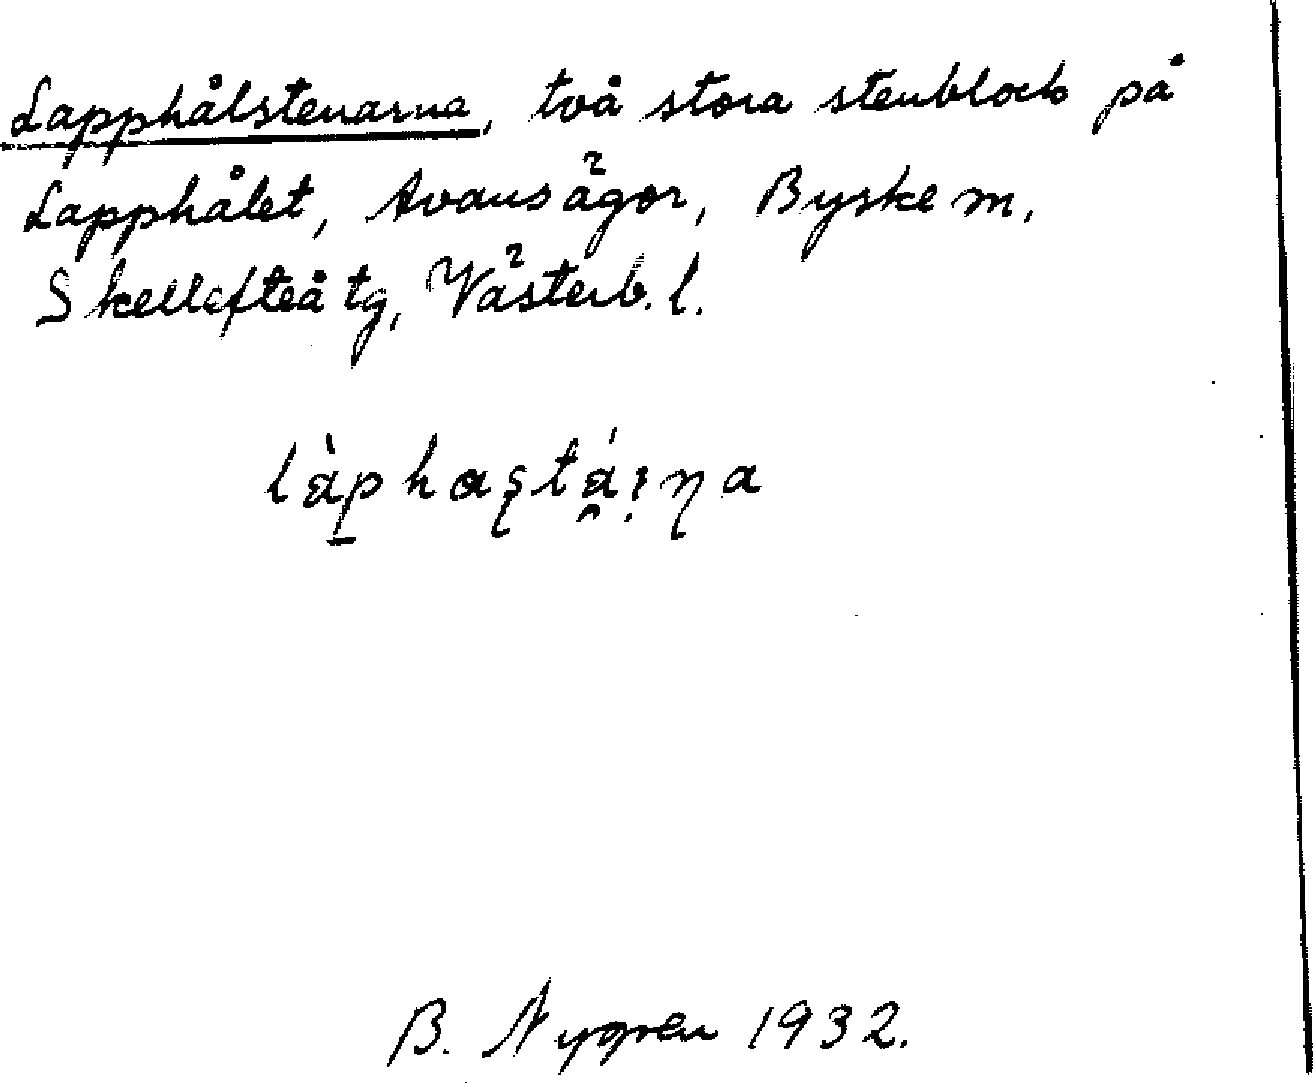 Lapphålstenarna, två stora stenblock på
Lapphålet, Avans ägor, Byske m,
Skellefteå tg, Västerb. l.
B. Nygren 1932.